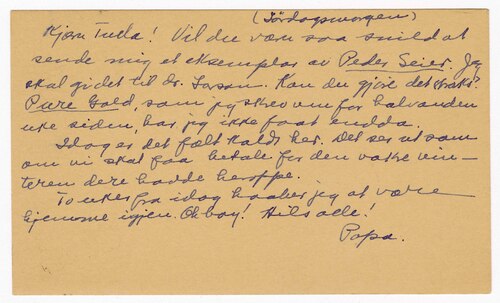 (Lördagsmorgen)
Kjære Tulla! Vil du være saa snild at
sende mig et eksemplar av Peder Seier. Jeg
skal gi det til dr. Larson. Kan du gjöre det straks?
Pure Gold, som jeg skrev om for halvanden
uke siden, har jeg ikke faat endda.
Idag er det fælt kaldt her. Det ser ut som
om vi skal faa betale for den vakre vin-
teren dere hadde heroppe.
To uker fra idag haaber jeg at være
hjemme igjen. Oh boy! Hils alle!
Papa.